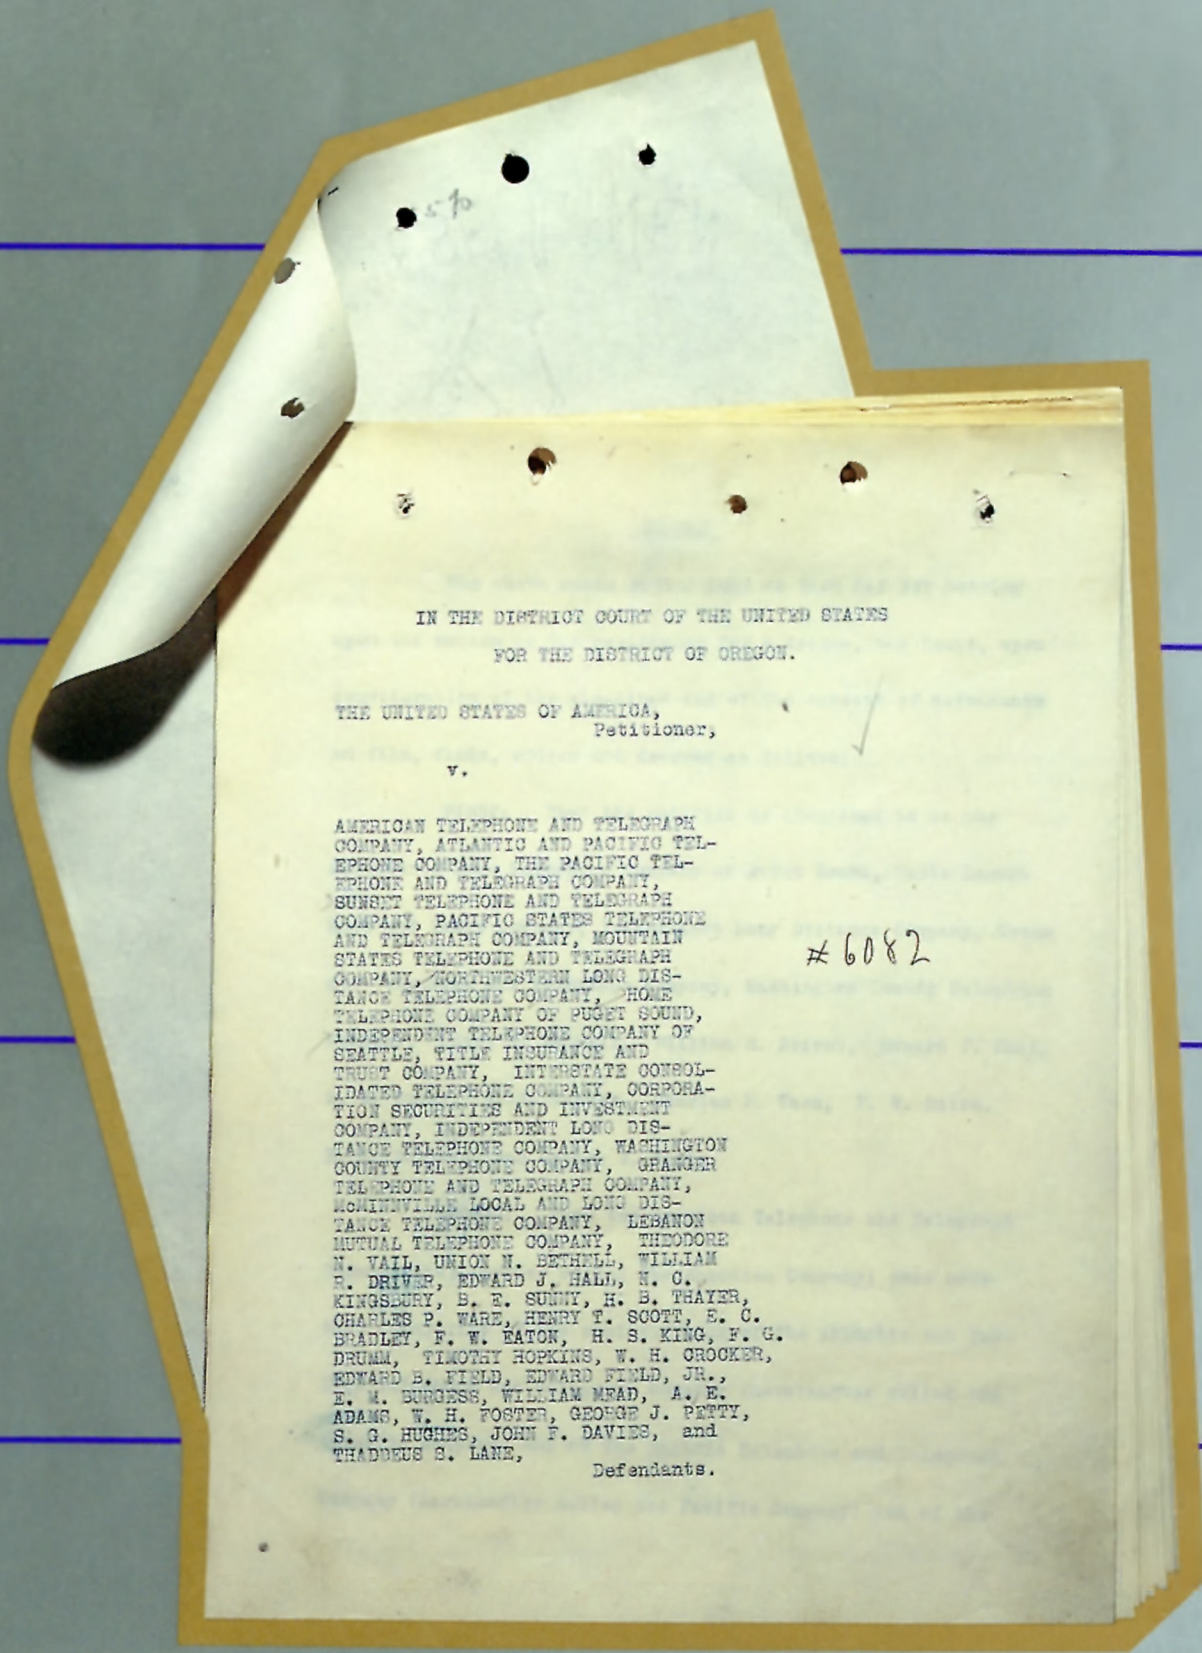 IN THE DISTRICT COURT OF THE UNITED STATES
FOR THE DISTRICT OF OREGON.
THE UNITED STATES OF AMERICA,
Petitioner,
v.
AMERICAN TELEPHONE AND TELEGRAPH
COMPANY, ATLANTIC AND PACIFIC TEL-
EPHONE COMPANY, THE PACIFIC TEL-
EPHONE AND TELEGRAPH COMPANY,
SUNSET TELEPHONE AND TELEGRAPH
COMPANY, PACIFIC STATES TELEPHONE
AND TELEGRAPH COMPANY, MOUNTAIN
STATES TELEPHONE AND TELEGRAPH
COMPANY, NORTHWESTERN LONG DIS-
TANCE TELEPHONE COMPANY, HOME
TELEPHONE COMPANY OF PUGET SOUND,
INDEPENDENT TELEPHONE COMPANY OF
SEATTLE, TITLE INSURANCE AND
TRUST COMPANY, INTERSTATE CONSOL-
IDATED TELEPHONE COMPANY, CORPORA-
TION SECURITIES AND INVESTMENT
COMPANY, INDEPENDENT LONG DIS-
TANCE TELEPHONE COMPANY, WASHINGTON
COUNTY TELEPHONE COMPANY, GRANGER
TELEPHONE AND TELEGRAPH COMPANY,
McMINNVILLE LOCAL AND LONG DIS-
TANCE TELEPHONE COMPANY, LEBANON
MUTUAL TELEPHONE COMPANY, THEODORE
N. VAIL, UNION N. BETHELL, WILLIAM
R. DRIVER, EDWARD J. HALL, N. C.
KINGSBURY, B. E. SUNNY, H. B. THAYER,
CHARLES P. WARE, HENRY T. SCOTT, E. C.
BRADLEY, F. W. EATON, H. S. KING, F. G.
DRUMM, TIMOTHY HOPKINS, W. H. CROCKER,
EDWARD B. FIELD, EDWARD FIELD, JR.,
E. M. BURGESS, WILLIAM MEAD, A. E.
ADAMS, W. H. FOSTER, GEORGE J. PETTY,
S. G. HUGHES, JOHN F. DAVIES, and
THADDEUS S. LANE,
Defendants.
#6082